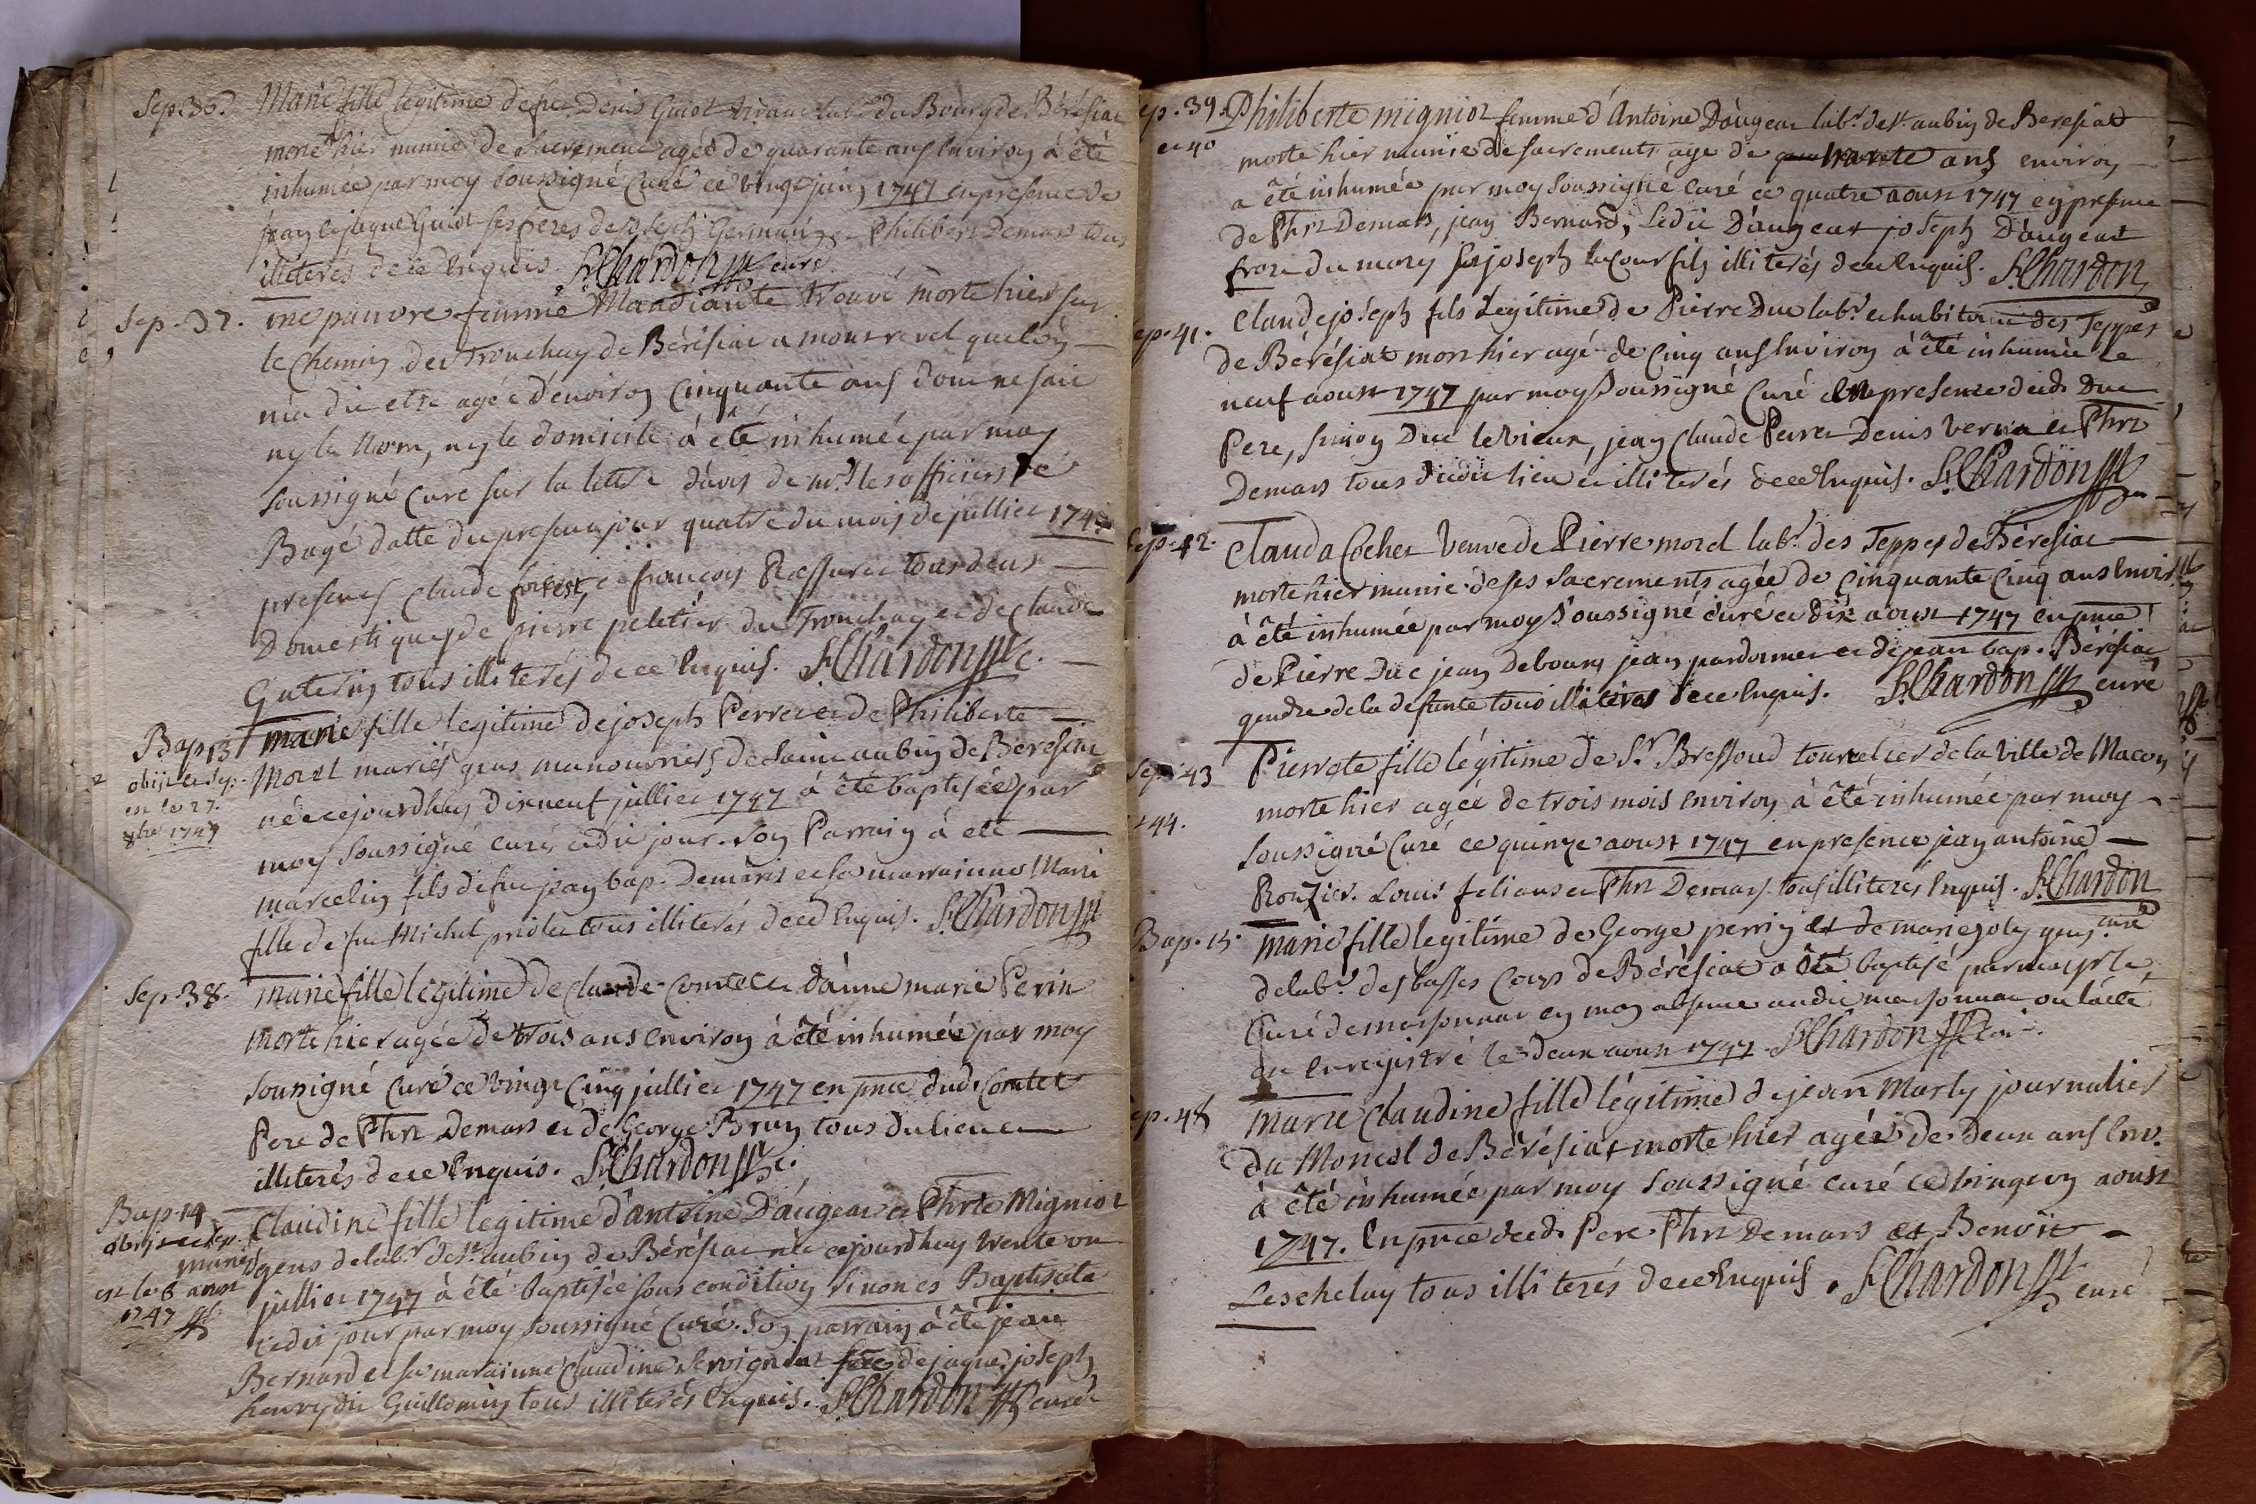 Sep. 36. Marie fille legitime de feu Denis Guiot vivant lab.r du Bourg de Bérésiat
morte hier munie de sacrement agée de quarante ans environ à été
inhumée par moy soussigné curé ce vingt juin 1747 en presence de
jean et jaque Guiot ses freres de joseph Germain, Philibert Demars tous
illiterés de ce Enquis. S.Chardon curé
Sep. 37. une pauvre femme Mandiante trouvé morte hier sur
le chemin des Tronchay de Bérésiat a montrevel que lon
m'a dit etre agée d'environ cinquante ans dont ne sait
ny le Nom, ny le domicile à été inhumée par moy
soussigné curé sur la lettre d'avis de mr.s les officiers de
Bagé datte du present jour quatre du mois de juillet 1747
presens Claude forest, et françois tous deux
Domestiques de pierre peletier du Tronchay et de claude
Guterin tous illiterés de ce Enquis. S.Chardon c.
Bap. 13 marie fille legitime de joseph Perret et de Philiberte
Morel mariés gens manouvriers de Saint aubin de Bérésiat
née ce jourdhuy dixneuf juillet 1747 à été baptisée par
moy soussigné curé, cedit jour. Son Parrain à été
marcelin fils de feu jean bap. Demars et sa marrainne Marie
fille de feu Michel tous illiterés de ce Enquis. S.Chardon
obijt
en le 27.
8bre 1747
Sep. 38. marie fille légitime de claude Comtet et d'anne marie Perin
morte hier agée de trois ans environ à été inhumée par moy
soussigné curé ce vingt cinq juillet 1747 en pnce dud. Comtet
Pere de Phrt Demars et de George Brun tous du lieu et
illiterés de ce Enquis. S.Chardon c.
Bap. 14 Claudine fille legitime d'antoine D'augeat et Phrte Migniot
gens de lab.r de St. aubin de Bérésiat née cejourdhuy trente un
juillet 1747 à été baptisée sous condition si non es Baptisata
cedit jour par moy soussigné curé. Son parrain à été jean
Bernard et sa marainne Claudine Servignat fe de jaque joseph
henry dit Guillomin tous illiterés Enquis. S.Chardon curé
obijt
est le 6 aoust
1747
Sep. 39. Philiberte migniot femme d'Antoine D'augeat lab.r de St. aubin de Beresiat
et 40 morte hier munie de sacrements age de quarante ans environ
a été inhumée par moy soussigné curé ce quatre aoust 1747 en presence
de Phrt Demars, jean Bernard, Ledit D'augeat joseph D'augeat
frere du mary joseph lacour fils illiterés de ce Enquis. S.Chardon
Sep. 41. Claude joseph fils Légitime de Pierre Duc lab.r et habitant des Teppes
de Bérésiat mort hier agé de cinq ans Environ à été inhumée ce
neuf aoust 1747 par moy soussigné curé en presence dud. Duc
Pere, simon Duc le vieux, jean Claude Perret Denis et Phrt
Demars tous dudit lieu et illiterés de ce Enquis. S.Chardon
Sep. 42. Clauda Cochet Veuve de Pierre morel lab.r des Teppes de Bérésiat
morte hier munie de ses sacrements agée de cinquante cinq ans Envir.
à été inhumée par moy soussigné curé ce dix aoust 1747 en pnce
de Pierre Duc jean Debourg jean pardonner et de jean bap. Bérésiat
gendre de la défunte tous illiteres de ce Enquis. S.Chardon curé
Sep. 43 Pierrete fille légitime de Sr Bressoud tourrelier de la ville de Macon
et 44. morte hier agée de trois mois Environ à été inhumée par moy
soussigné curé ce quinze aoust 1747 en presence jean antoine
Rouzier. Louis et Phrt Demars. tous illiterés Enquis. S.Chardon
curé
Bap. 15 Marie fille legitime de George perrin et de marie joly gens
de lab.r des basses Cours de Bérésiat a été baptisé par mr le
Curé de marsonnar en mon absence audit marsonnar ou l'acte
Enregistré le deux aoust 1747. S.Chardon
Sep. 48 Marie Claudine fille légitime de jean Marly journalier
du Moncel de Bérésiat morte hier agée de deux ans Env.
à été inhumée par moy soussigné curé ce vingt un aoust
1747. En pnce dud. Pere Phrt Demars et Benoit
Leschelay tous illiterés de ce Enquis. S.Chardon curé